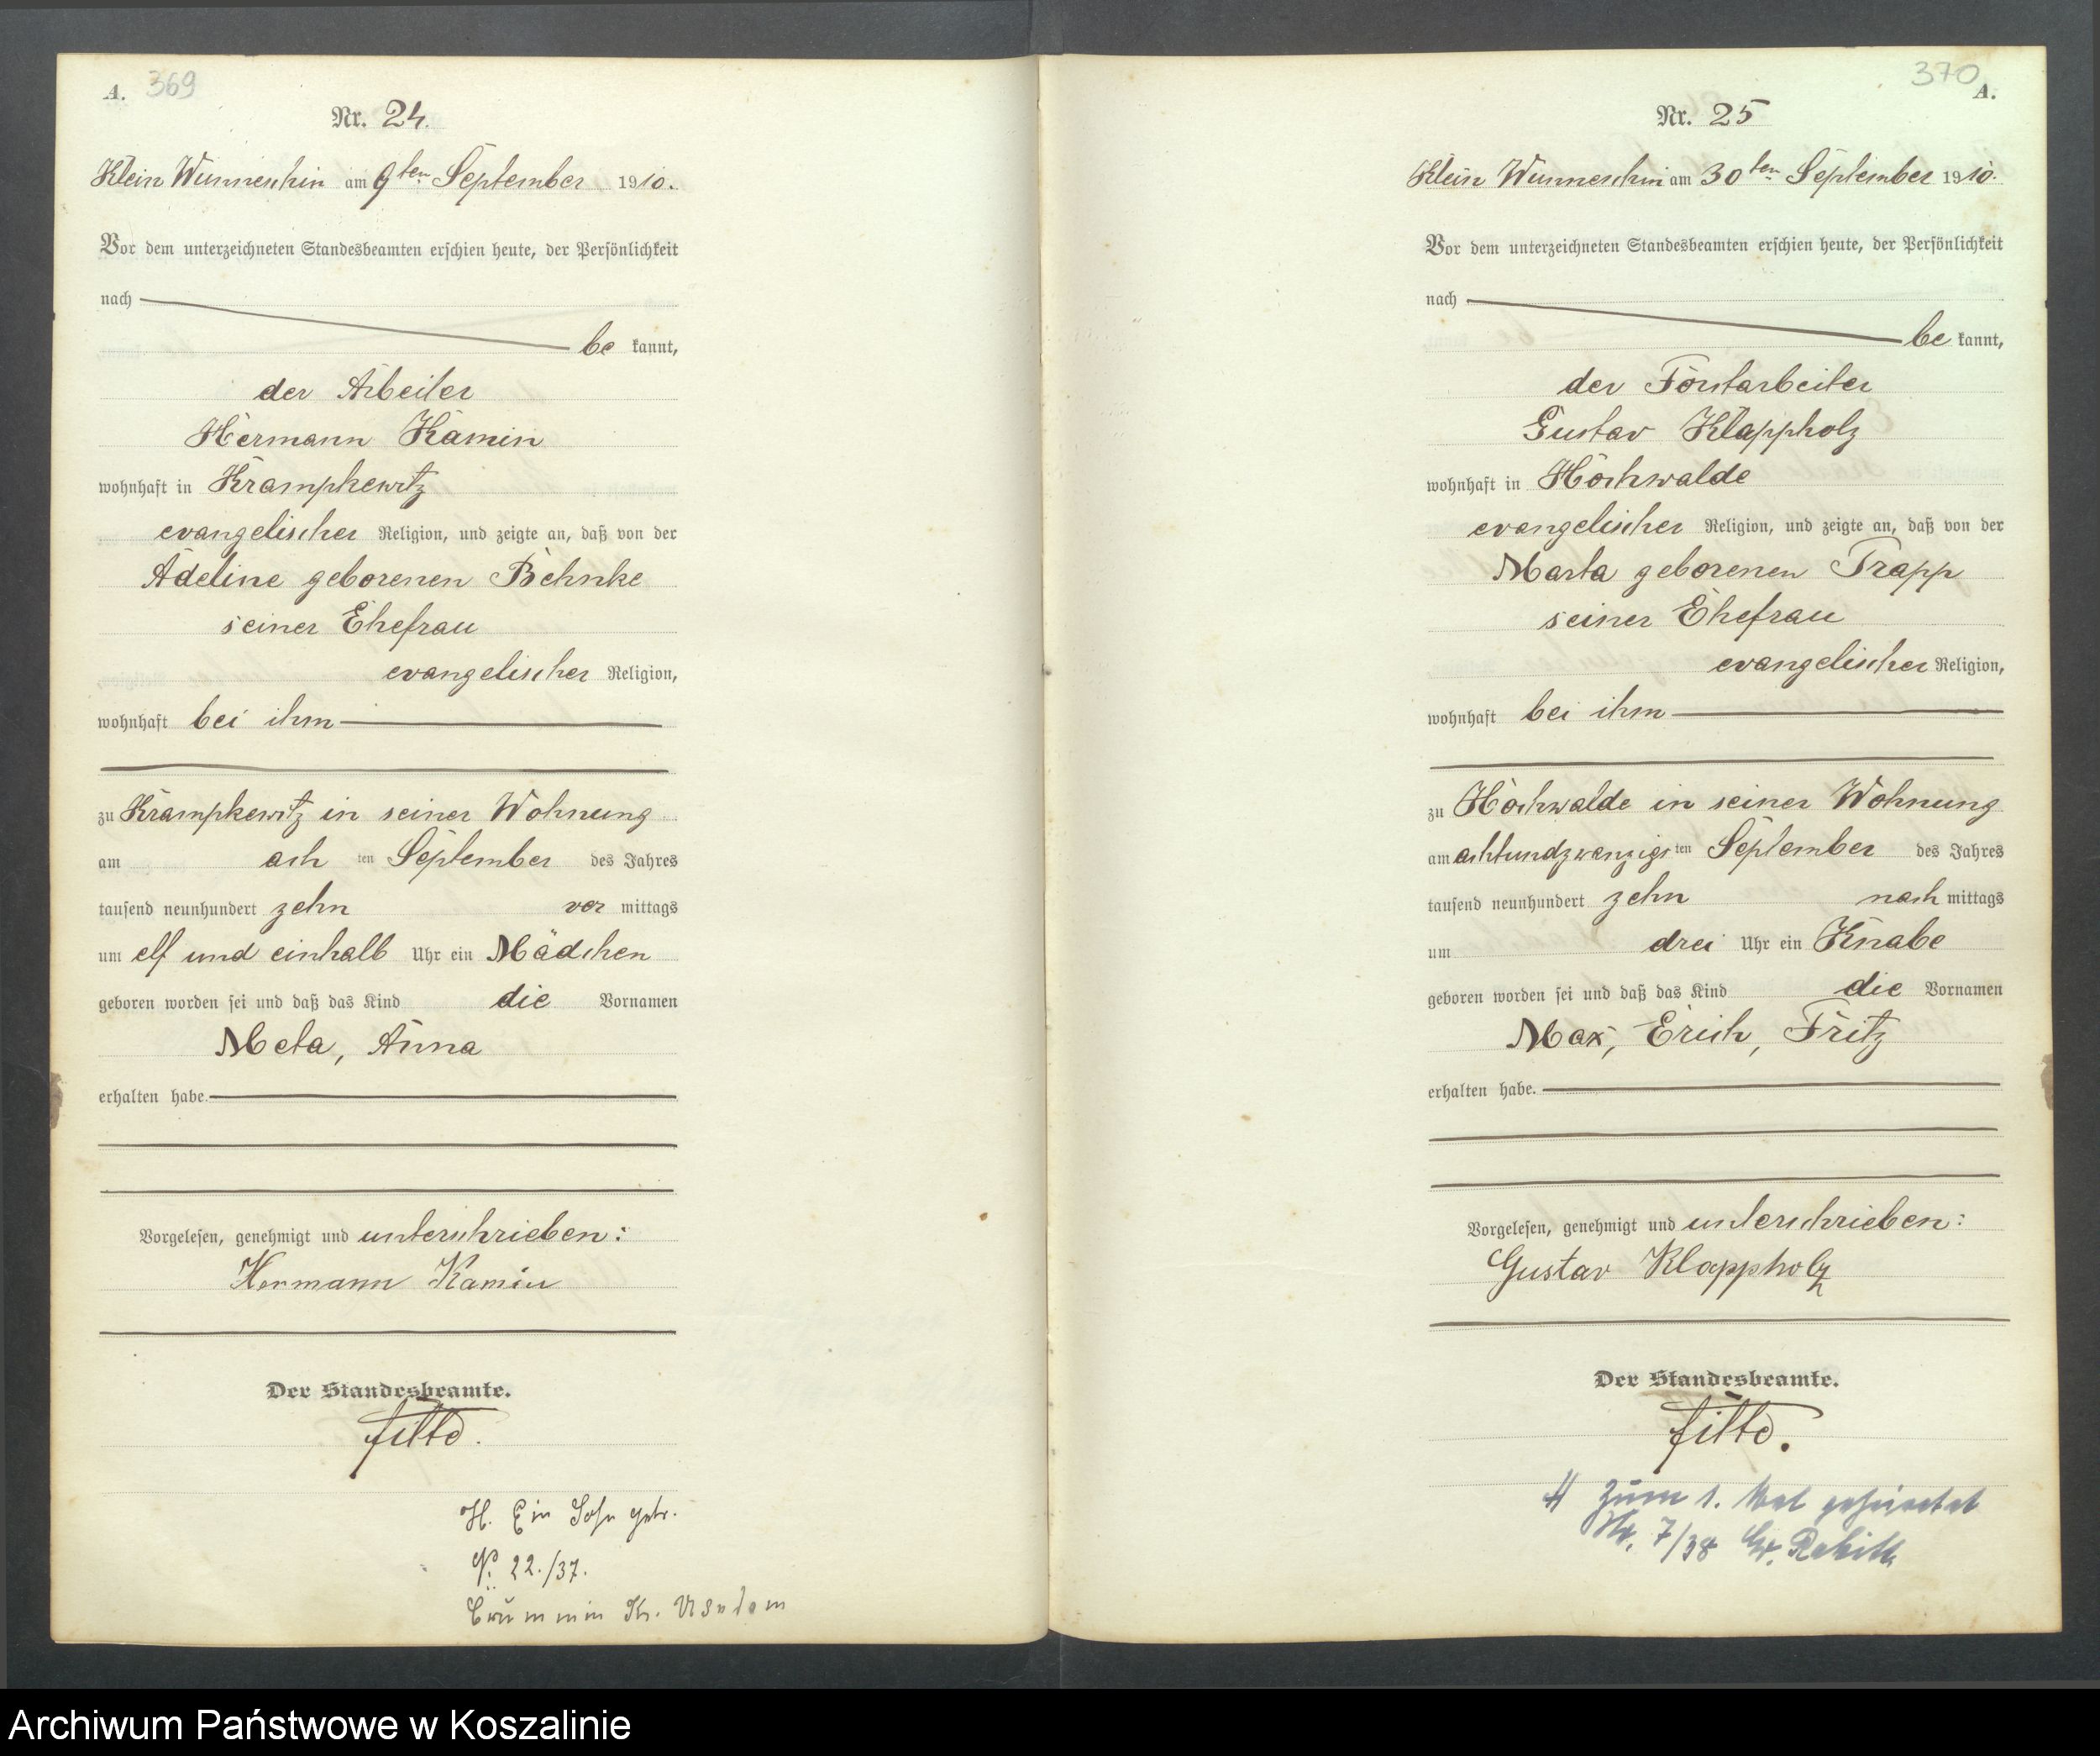 A. 369
Nr. 24.
Klein Wunneschin am 9ten September 1910.
Vor dem unterzeichneten Standesbeamten erschien heute, der Persönlichkeit
nach
be kannt,
der Arbeiter
Hermann Kamin
wohnhaft in Krampkewitz
evangelischer Religion, und zeigte an, daß von der
Adeline geborenen Behnke
seiner Ehefrau
evangelischer Religion,
wohnhaft bei ihm
zu Krampkewitz in seiner Wohnung
am ach ten September des Jahres
tausend neunhundert zehn vor mittags
um elf und einhalb Uhr ein Mädchen
geboren worden sei und daß das Kind die Vornamen
Meta, Anna
erhalten habe.
Vorgelesen, genehmigt und unterschrieben:
Hermann Kamin
Der Standesbeamte.
H. Ein Sohn geb.
N: 22./37.
Crummin Kr. Usedom
370 A.
Nr. 25
Klein Wunneschin am 30ten September 1910.
Vor dem unterzeichneten Standesbeamten erschien heute, der Persönlichkeit
nach
be kannt,
der Forstarbeiter
Gustav Klappholz
wohnhaft in Hochwalde
evangelischer Religion, und zeigte an, daß von der
Marta geborenen Trapp
seiner Ehefrau
evangelischer Religion,
wohnhaft bei ihm
zu Hochwalde in seiner Wohnung
am achtundzwanzigs ten September des Jahres
tausend neunhundert zehn nach mittags
um drei Uhr ein Knabe
geboren worden sei und daß das Kind die Vornamen
Max, Erich, Fritz
erhalten habe.
Vorgelesen, genehmigt und unterschrieben:
Gustav Klappholz
Der Standesbeamte.
Zum 1. Mal geheiratet
Nr. 7/38 Gr.
Archiwum Państwowe w Koszalinie